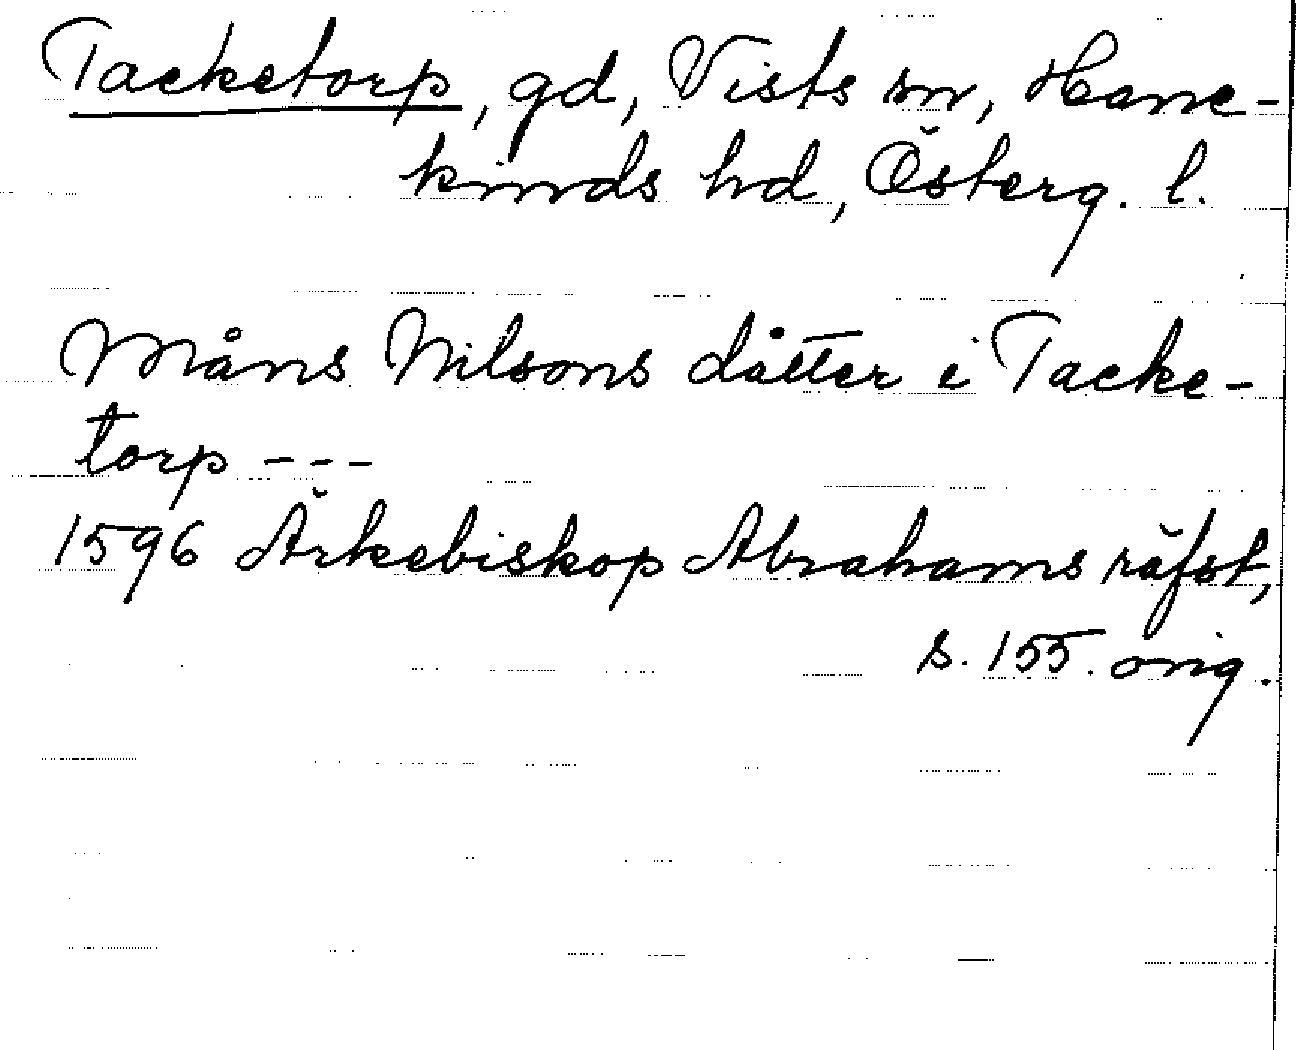 Tacketorp, gd, Vists sn, Hane-
kinds hd, Österg. l.
Måns Nilsons dåtter i Tacke-
torp ---
1596 Ärkebiskop Abrahams räfst,
s. 155. orig.